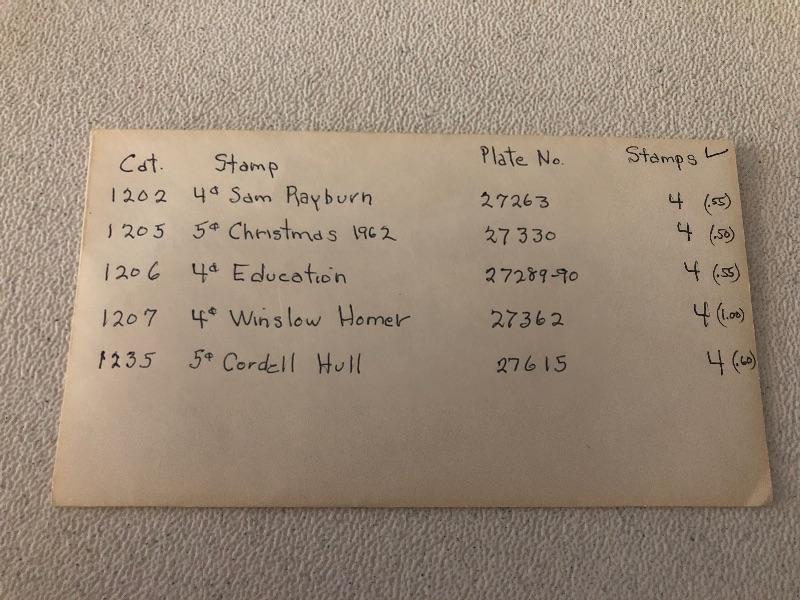 Cat. Stamp Plate No. Stamps ✓
1202 4¢ Sam Rayburn 27263 4 (.55)
1205 5¢ Christmas 1962 27330 4 (.50)
1206 4¢ Education 27289-90 4 (.55)
1207 4¢ Winslow Homer 27362 4 (1.00)
1235 5¢ Cordell Hull 27615 4 (.60)